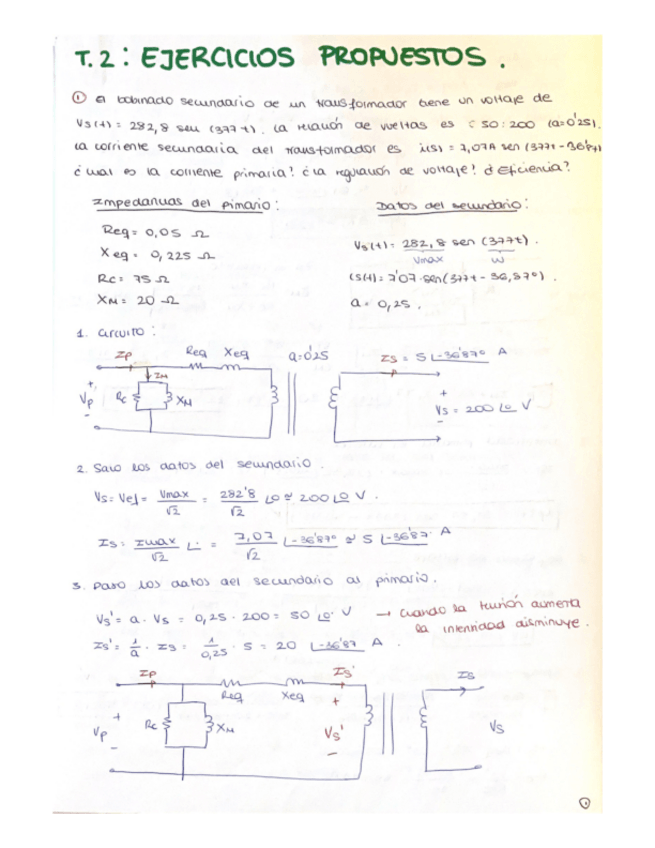 T.2: EJERCICIOS PROPUESTOS.
① El bobinado secundario de un transformador tiene un voltaje de
Vs(t) = 282,8 sen (377 t). La relación de vueltas es (50:200 (a=0'25).
La corriente secundaria del transformador es is(s) = 7,07A sen (377t - 36'87)
¿Cual es la corriente primaria? ¿La regulación de voltaje? ¿Eficiencia?
Impedancias del Pimario:
Datos del secundario:
Req = 0,05 Ω
Xeq = 0,225 Ω
Rc = 75 Ω
XM = 20 Ω
Vs(t) = 282,8 sen (377t).
Vmax
w
is(t) = 7'07·sen(377t - 36,87º).
a = 0,25.
1. Circuito:
Ip
Req
Xeq
a=0'25
Is = 5 ∟-36'87º A
IM
+
Vp
-
Rc
XM
+
Vs = 200 ∟0 V
-
2. Saco los datos del secundario.
Vs = Vef = Vmax/√2 = 282'8/√2 ∟0 ≃ 200 ∟0 V.
Is = Imax/√2 ∟: = 7,07/√2 ∟-36'87º ≃ 5 ∟-36'87· A
3. Paso los datos del secundario al primario.
Vs' = a · Vs = 0,25 · 200 = 50 ∟0· V → Cuando la tensión aumenta
la intensidad disminuye.
Is' = 1/a · Is = 1/0,25 · 5 = 20 ∟-36'87 A.
Ip
Req
Xeq
Is'
Is
+
Vp
-
Rc
XM
+
Vs'
-
Vs
①